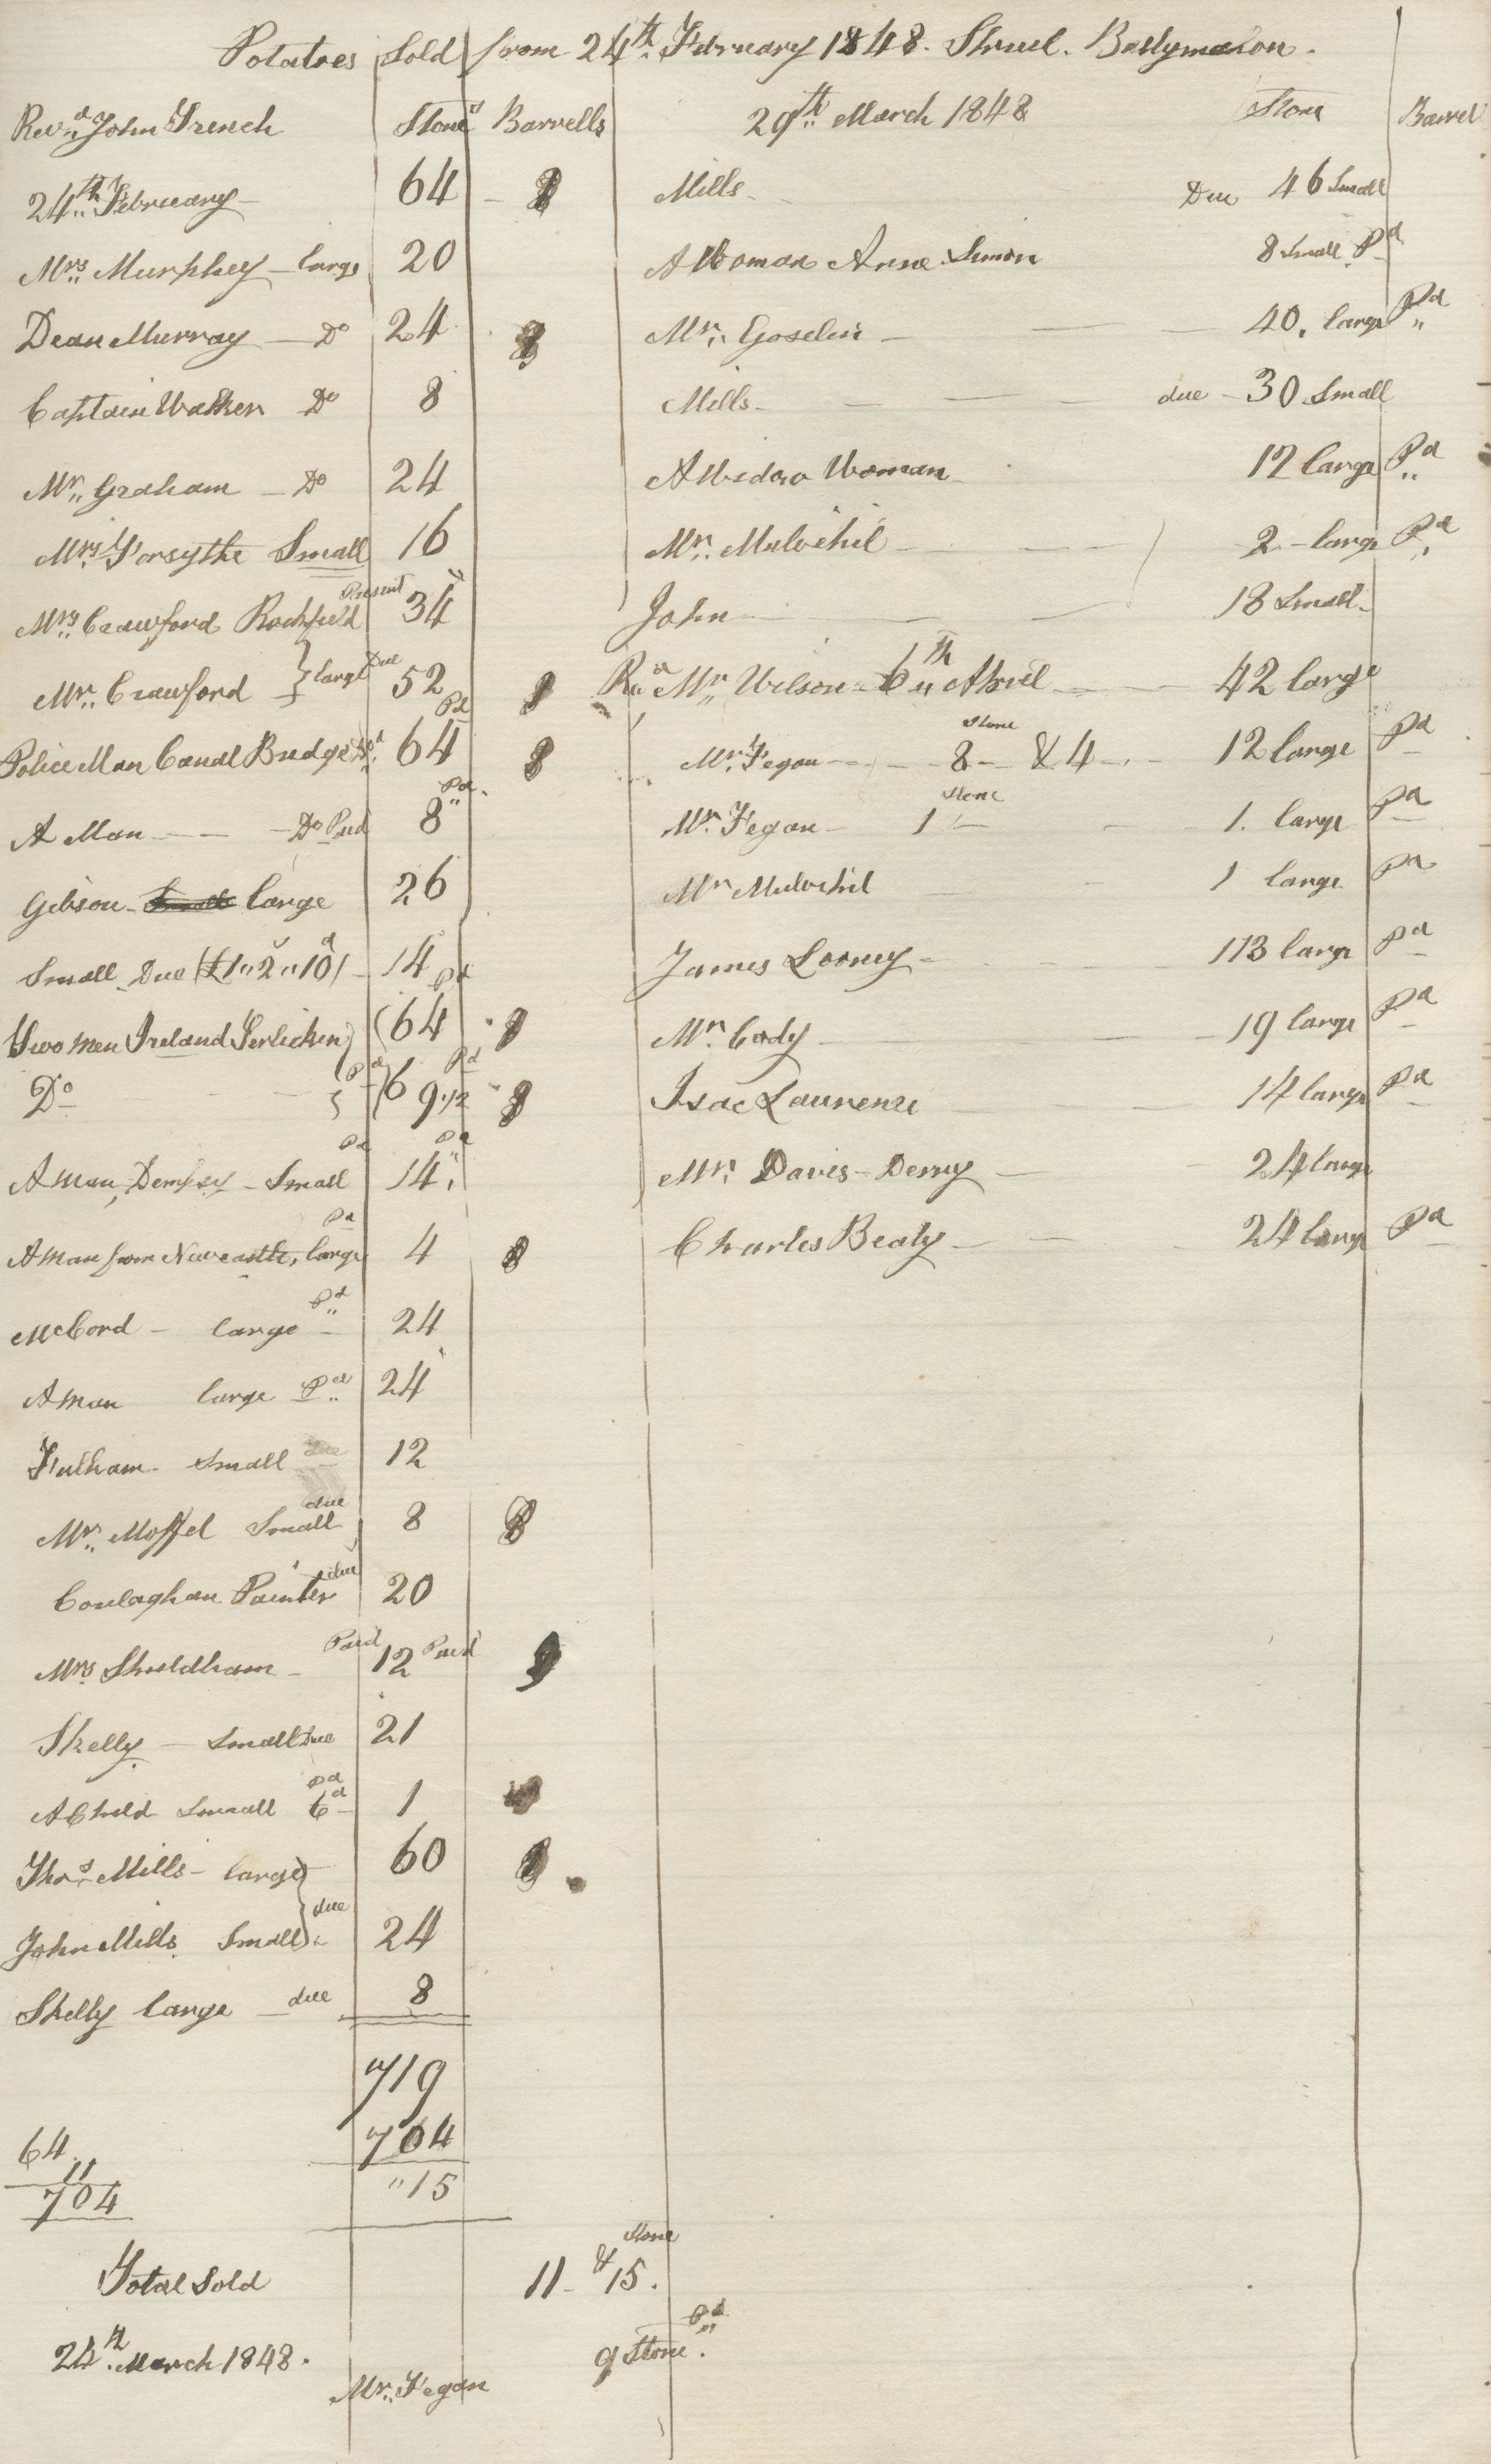 Potatoes Sold from 24th February 1848. Shrule. Ballymahon.
Revd. John French Stones Barrells
24th February 64
Mrs. Murphey large 20
Dean Murray Do 24
Captain Walker Do 8
Mr. Graham Do 24
Mrs. Forsythe Small 16
Mrs. Crawford Rockfield Present 34
Mr. Crawford large Due 52
Police Man Canal Bridge Pd 64 Pd
A Man Do Paid 8 Pd
Gibson large 26
Small Due £1"2"10d 14
Two Men Ireland Terlicken 64 Pd
Do Pd 69 1/2 Pd
A Man, Dempsy Small Pd 14 Pd
A Man from Newcastle, large Pd 4
McCord large Pd 24
A Man large Pd 24
Fulham Small due 12
Mr. Moffet Small due 8
Conlaghan Painter due 20
Mrs Shuldham Paid 12 Paid
Skelly Small Due 21
A Child Small 6d Pd 1
Thos. Mills large 60
due
John Mills Small 24
Skelly large due 8
719
704
"15
64
11
704
Total Sold 11 & 15 Stone
24th March 1848.
Mr. Fegan 9 Stone Pd
29th March 1848 Stone Barrel
Mills Due 46 Small
A Woman Anne Simon 8 Small Pd
Mr. Goselin 40, large Pd
Mills due 30 Small
A Widow Woman 12 large Pd
Mr. Mulvihil 2 large Pd
John 18 Small
Rd Mr Wilson 6th April 42 large
Mr. Fegan 8 Stone & 4 12 large Pd
Mr. Fegan 1 Stone 1. large Pd
Mr Mulvihil 1 large Pd
James Looney 113 large Pd
Mr. Cody 19 large Pd
Isac Laurence 14 large Pd
Mr. Davis Derry 24 large
Charles Bealy 24 large Pd